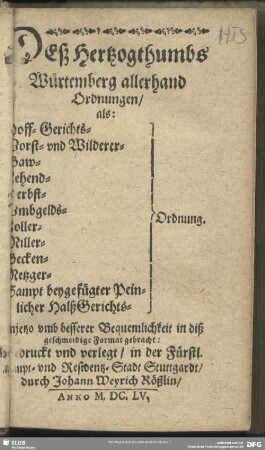 1415
Deß Hertzogthumbs
Würtemberg allerhand
Ordnungen/
als:
Hoff- Gerichts-
Vorst- vnd Wilderer-
Baw-
Zehend-
Herbst-
Vmbgelds-
Zoller-
Miller-
Becken-
Metzger-
Ordnung.
Sampt beygefügter Pein-
licher Halß Gerichts-
Anjetzo vmb besserer Bequemlichkeit in diß
geschmeidige Format gebracht:
Gedruckt vnd verlegt/ in der Fürstl.
Haupt- vnd Residentz-Stadt Stuttgardt/
durch Johann Weyrich Rößlin/
ANNO M. DC. LV.
SLUB
DFG